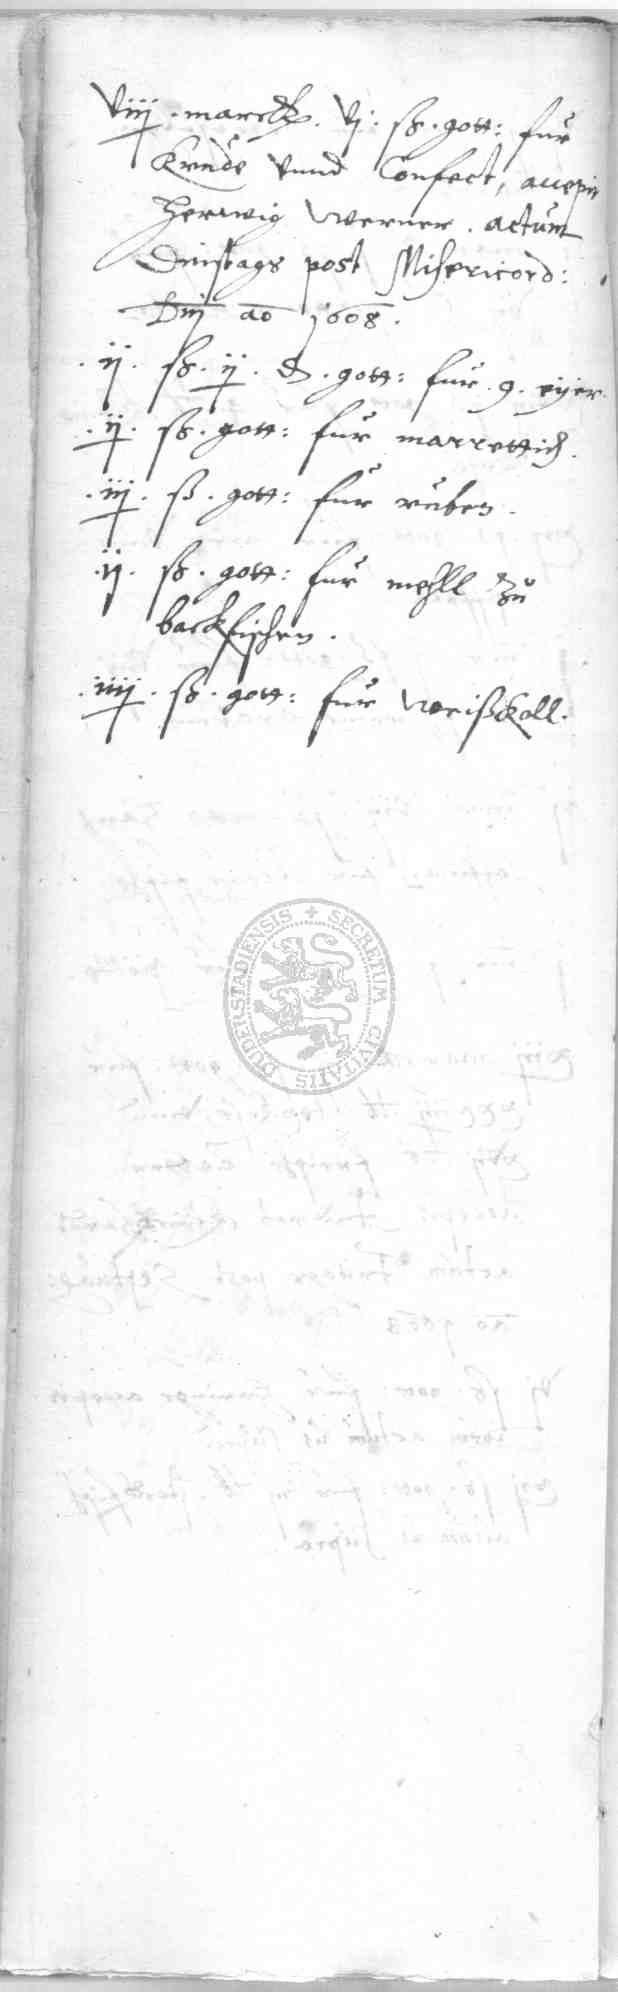 viij . marck . vj . ß . gott : fur
Krude vnnd Confect, accepit
Herwig Werner . actum
Dinstags post Misericord :
Dnj ao 1608 .
. ij . ß . ij . d . gott : fur . 9 . eyer .
. ij . ß . gott : fur marrettich .
. iij . ß . gott : fur ruben .
. ij . ß . gott : fur mehll zu
backfischen .
. iiij . ß . gott : fur Weißkoll .
SECRETUM CIVITATIS DUDERSTADIENSIS